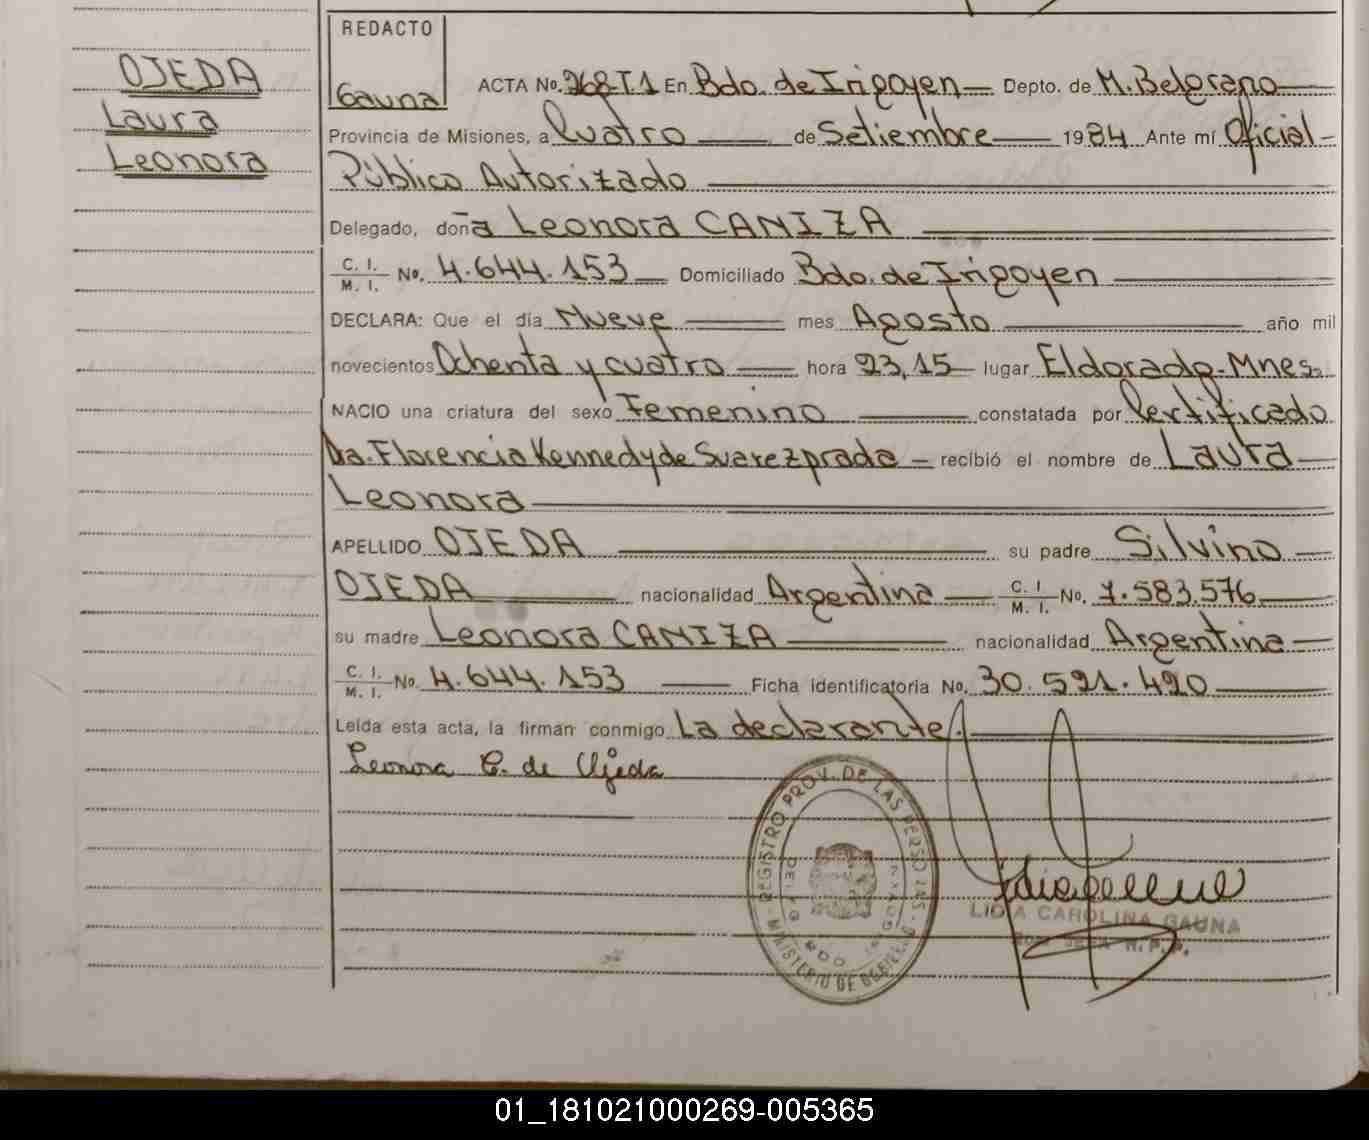 OJEDA
Laura
Leonora
REDACTO
Gauna
ACTA No. 268 T.1 En Bdo. de Irigoyen Depto. de M. Belgrano
Provincia de Misiones, a Cuatro de Setiembre 1984 Ante mí Oficial
Público Autorizado
Delegado, doña Leonora CANIZA
C. I.
M. I. No. 4.644.153 Domiciliado Bdo. de Irigoyen
DECLARA: Que el día Nueve mes Agosto año mil
novecientos Ochenta y cuatro hora 23,15 lugar Eldorado-Mnes.
NACIO una criatura del sexo Femenino constatada por Certificado
Dra. Florencia Kennedy de Suarezprado recibió el nombre de Laura
Leonora
APELLIDO OJEDA su padre Silvino
OJEDA nacionalidad Argentina C. I. M. I. No. 7.583.576
su madre Leonora CANIZA nacionalidad Argentina
C. I.
M. I. No. 4.644.153 Ficha identificatoria No. 30.591.420
Leída esta acta, la firman conmigo La declarante.
Leonora C. de Ojeda
REGISTRO PROV. DE LAS PERSONAS
MINISTERIO DE GOBIERNO
LIDIA CAROLINA GAUNA
01_181021000269-005365